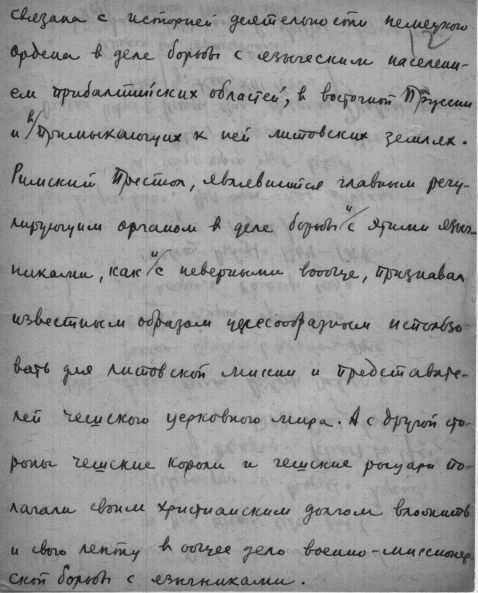 связана с историей деятельности немецкого
12
ордена в деле борьбы с языческим населени-
ем прибалтийских областей, в восточной Пруссии
и в примыкающих к ней литовских землях.
Римский Престол, являвшийся главным регу-
лирующим органом в деле борьбы и с этими языч-
никами, как и с неверными вообще, признавал
известным образом целесообразным использо-
вать для литовской миссии и представите-
лей чешского церковного мира. А с другой сто-
роны чешские короли и чешские рыцари по-
лагали своим христианским долгом вложить
и свою лепту в общее дело военно-миссионер-
ской борьбы с язычниками.